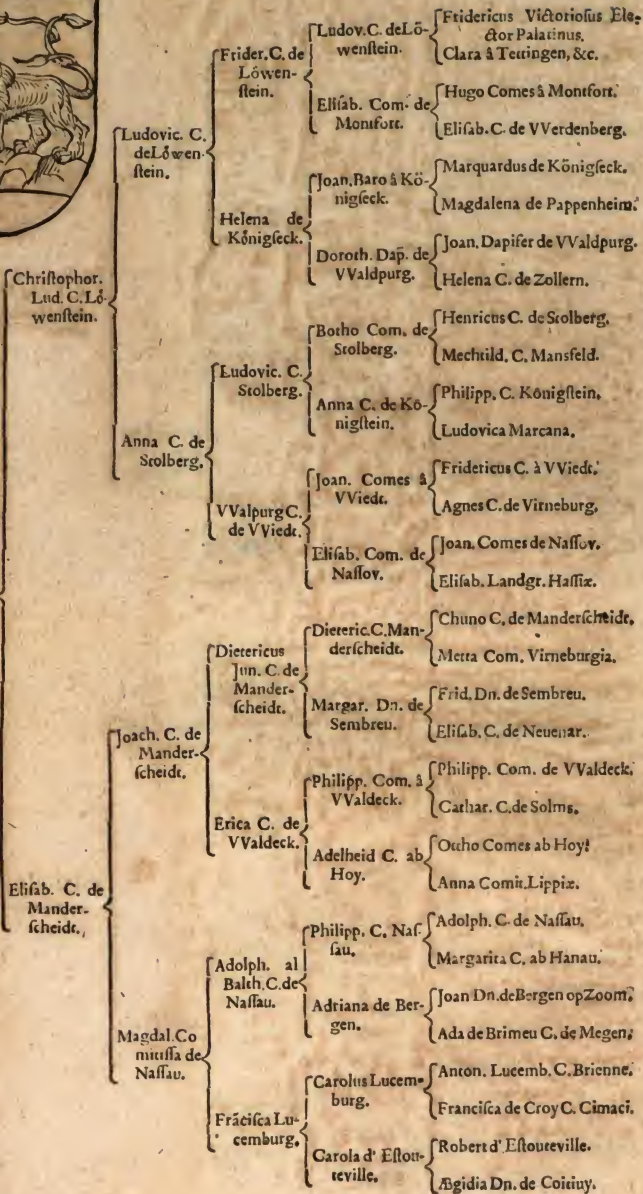 Christophor.
Lud. C. Lö-
wenstein.
Elisab. C. de
Mander-
scheidt.
Ludovic. C.
de Löwen-
stein.
Anna C. de
Stolberg.
Joach. C. de
Mander-
scheidt.
Magdal. Co
mitissa de
Nassau.
Frider. C. de
Löwen-
stein.
Helena de
Königseck.
Ludovic. C.
Stolberg.
VValpurg C.
de VViedt.
Dietericus
Jun. C. de
Mander-
scheidt.
Erica C. de
VValdeck.
Adolph. al
Balth. C. de
Nassau.
Frãcisca Lu-
cemburg.
Ludov. C. de Lö-
wenstein.
Elisab. Com. de
Montfort.
Joan. Baro à Kö-
nigseck.
Doroth. Dap. de
VValdpurg.
Botho Com. de
Stolberg.
Anna C. de Kö-
nigstein.
Joan. Comes à
VViedt.
Elisab. Com. de
Nassov.
Dieteric. C. Man-
derscheidt.
Margar. Dn. de
Sembreu.
Philipp. Com. à
VValdeck.
Adelheid C. ab
Hoy.
Philipp. C. Nas-
sau.
Adriana de Ber-
gen.
Carolus Lucem-
burg.
Carola d' Estou-
teville.
Fridericus Victoriosus Ele-
ctor Palatinus.
Clara à Tettingen, &c.
Hugo Comes à Montfort.
Elisab. C. de VVerdenberg.
Marquardus de Königseck.
Magdalena de Pappenheim.
Joan. Dapifer de VValdpurg.
Helena C. de Zollern.
Henricus C. de Stolberg.
Mechtild. C. Mansfeld.
Philipp. C. Königstein.
Ludovica Marcana.
Fridericus C. à VViedt.
Agnes C. de Virneburg.
Joan. Comes de Nassov.
Elisab. Landgr. Hassiæ.
Chuno C. de Manderscheidt.
Metta Com. Virneburgia.
Frid. Dn. de Sembreu.
Elisab. C. de Neuenar.
Philipp. Com. de VValdeck.
Cathar. C. de Solms.
Ottho Comes ab Hoy.
Anna Comit. Lippiæ.
Adolph. C. de Nassau.
Margarita C. ab Hanau.
Joan Dn. de Bergen op Zoom.
Ada de Brimeu C. de Megen.
Anton. Lucemb. C. Brienne.
Francisca de Croy C. Cimaci.
Robert d' Estouteville.
Ægidia Dn. de